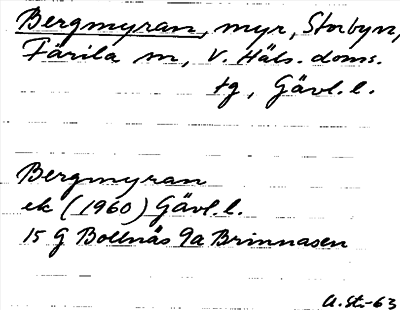 Bergmyran, myr, Storbyn,
Färila sn, V. Häls. doms.
tg, Gävl. l.
Bergmyran
ek (1960) Gävl. l.
15 G Bollnäs 9a Brinnåsen
U. St.-63